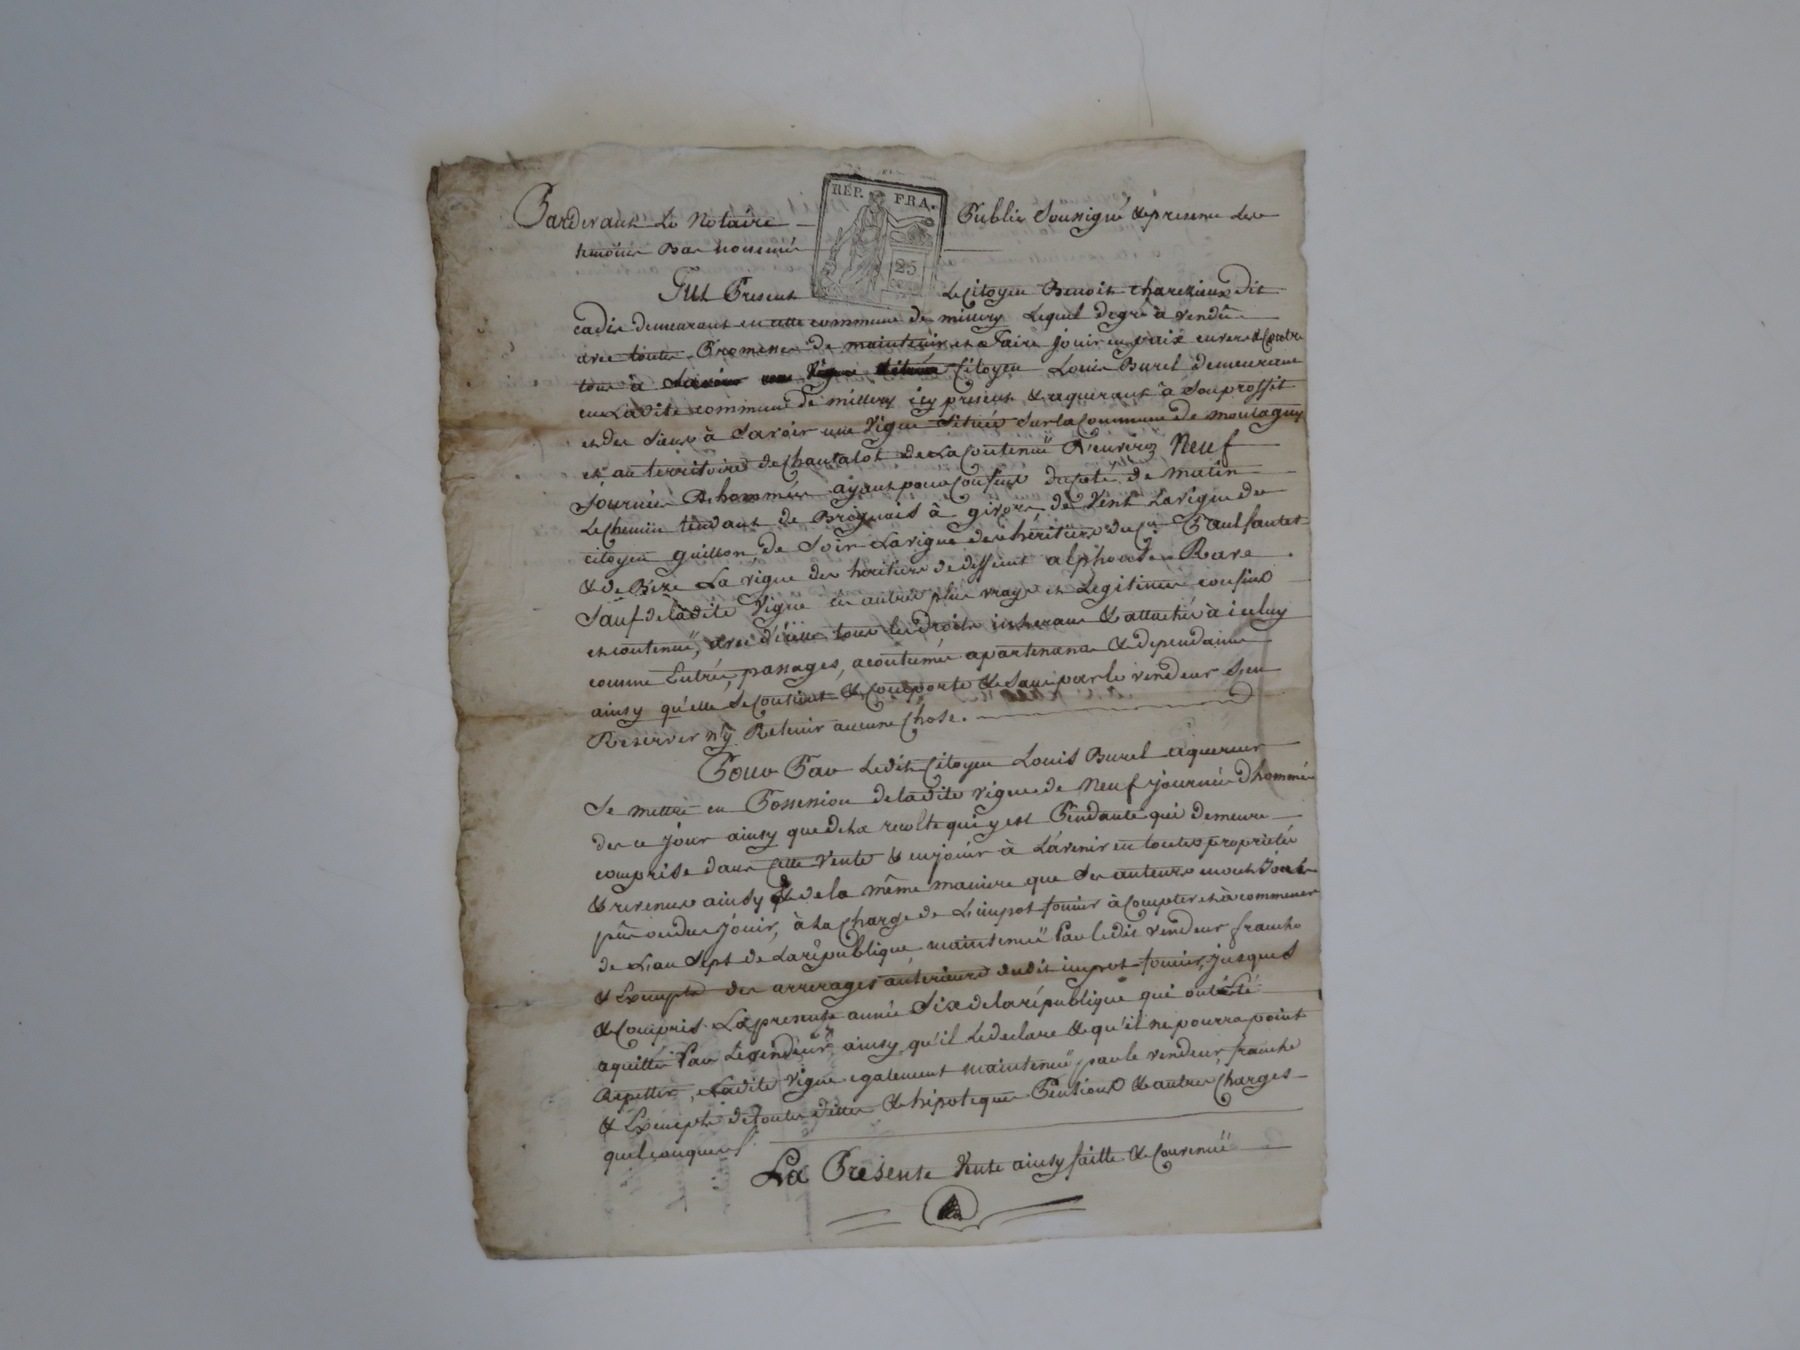 Pardevant Le Notaire Public Soussigné & presence des
temoins Bas nommés
REP. FRA.
25
Fut Present Le Citoyen Benoit Charezieux dit
cadis demeurant en cette commune de millery Lequel de gré à vendu
avec toutes Promesses de maintenir et Faire jouir en paix envers & Contre
tous à Citoyen Louis Burel demeurant
en Ladite commune de millery icy present & aquerant à Son proffit
et des siens à Savoir une Vigne Située Sur la Commune de montagny
et au territoire de Chantalot de La Contenuë d'environ Neuf
Journées d'hommées ayant pour Confins du coté de matin
Le Chemin tendant de Brignais à givors, de Vent La vigne du
citoyen guillon, de Soir La vigne des héritiers du Cn Paul
& de Bize La vigne des heritiers de deffunt alphonse Rave
Sauf de la dite Vigne ses autres plus vrays et Legitimes confins
et contenuë, avec d'icelle tous les droits inherans & attachés à iceluy
comme Entrées, passages, acoutumés apartenance & dependances
ainsy qu'elle Se Contient & Comporte & Sans par le vendeur S'en
Reserver n'y Retenir aucune Chose.
Pour Par Ledit Citoyen Louis Burel aquereur
Se mettre en Possession de ladite vigne de Neuf journées d'hommées
des ce jour ainsy que de la recolte qui y est Pendante qui demeure
comprise dans Cette vente & en jouir à L'avenir en toutes proprietés
& revenus ainsy & de la même maniere que Ses auteurs en ont Jouit
pû ou du jouir, à la Charge de L'impot foncier à Compter et à commencer
de L'an Sept de La republique, maintenuë Par ledit vendeur franche
& Exempte des arrerages anterieurs dudit impot foncier, jusques
& Compris La presente année Six de la république qui ont Eté
aquittés Par Le vendeur, ainsy qu'il Le declare & qu'il ne pourra point
Repetter, Ladite vigne egalement maintenuë par le vendeur, franche
& Exempte de toutes dettes & hipoteques Pensions & autres Charges
quelconques.
La Presente Vente ainsy faitte & Convenuë